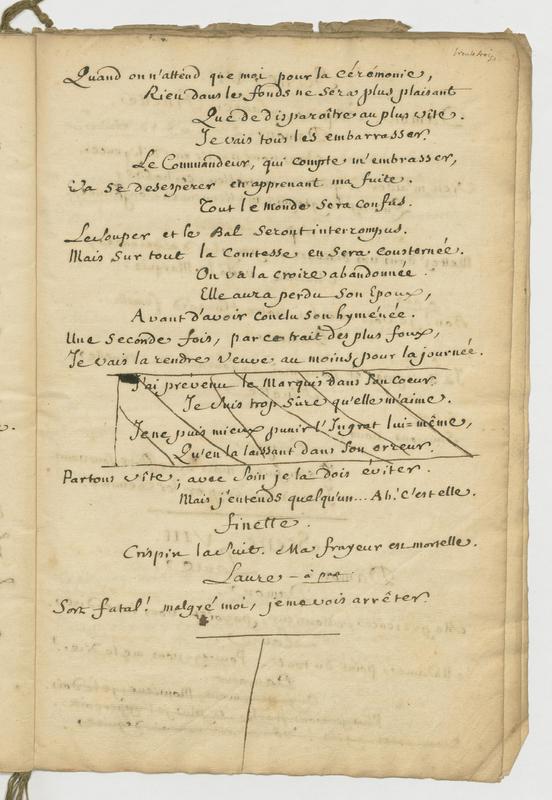 trente trois
Quand on n'attend que moi pour la cérémonie,
Rien dans le fonds ne sera plus plaisant
Que de disparoître au plus vite.
Je vais tous les embarrasser.
Le Commandeur, qui compte m'embrasser,
Va se desesperer en apprenant ma fuite.
Tout le monde sera confus.
Le souper et le Bal seront interrompus.
Mais sur tout la Comtesse en sera consternée.
On va la croire abandonnée.
Elle aura perdu son Epoux,
Avant d'avoir conclu son hyménée.
Une seconde fois, par ce trait des plus foux,
Je vais la rendre veuve au moins pour la journée.
J'ai prevenu le Marquis dans son coeur.
Je suis trop sûre qu'elle m'aime.
Je ne puis mieux punir l'Ingrat lui=même,
Qu'en la laissant dans son erreur.
Partons vîte; avec soin je la dois éviter.
Mais j'entends quelqu'un... Ah! C'est elle.
finette.
Crispin la suit. Ma frayeur est mortelle.
Laure - à part
Sort fatal! malgré moi, je me vois arrêter.